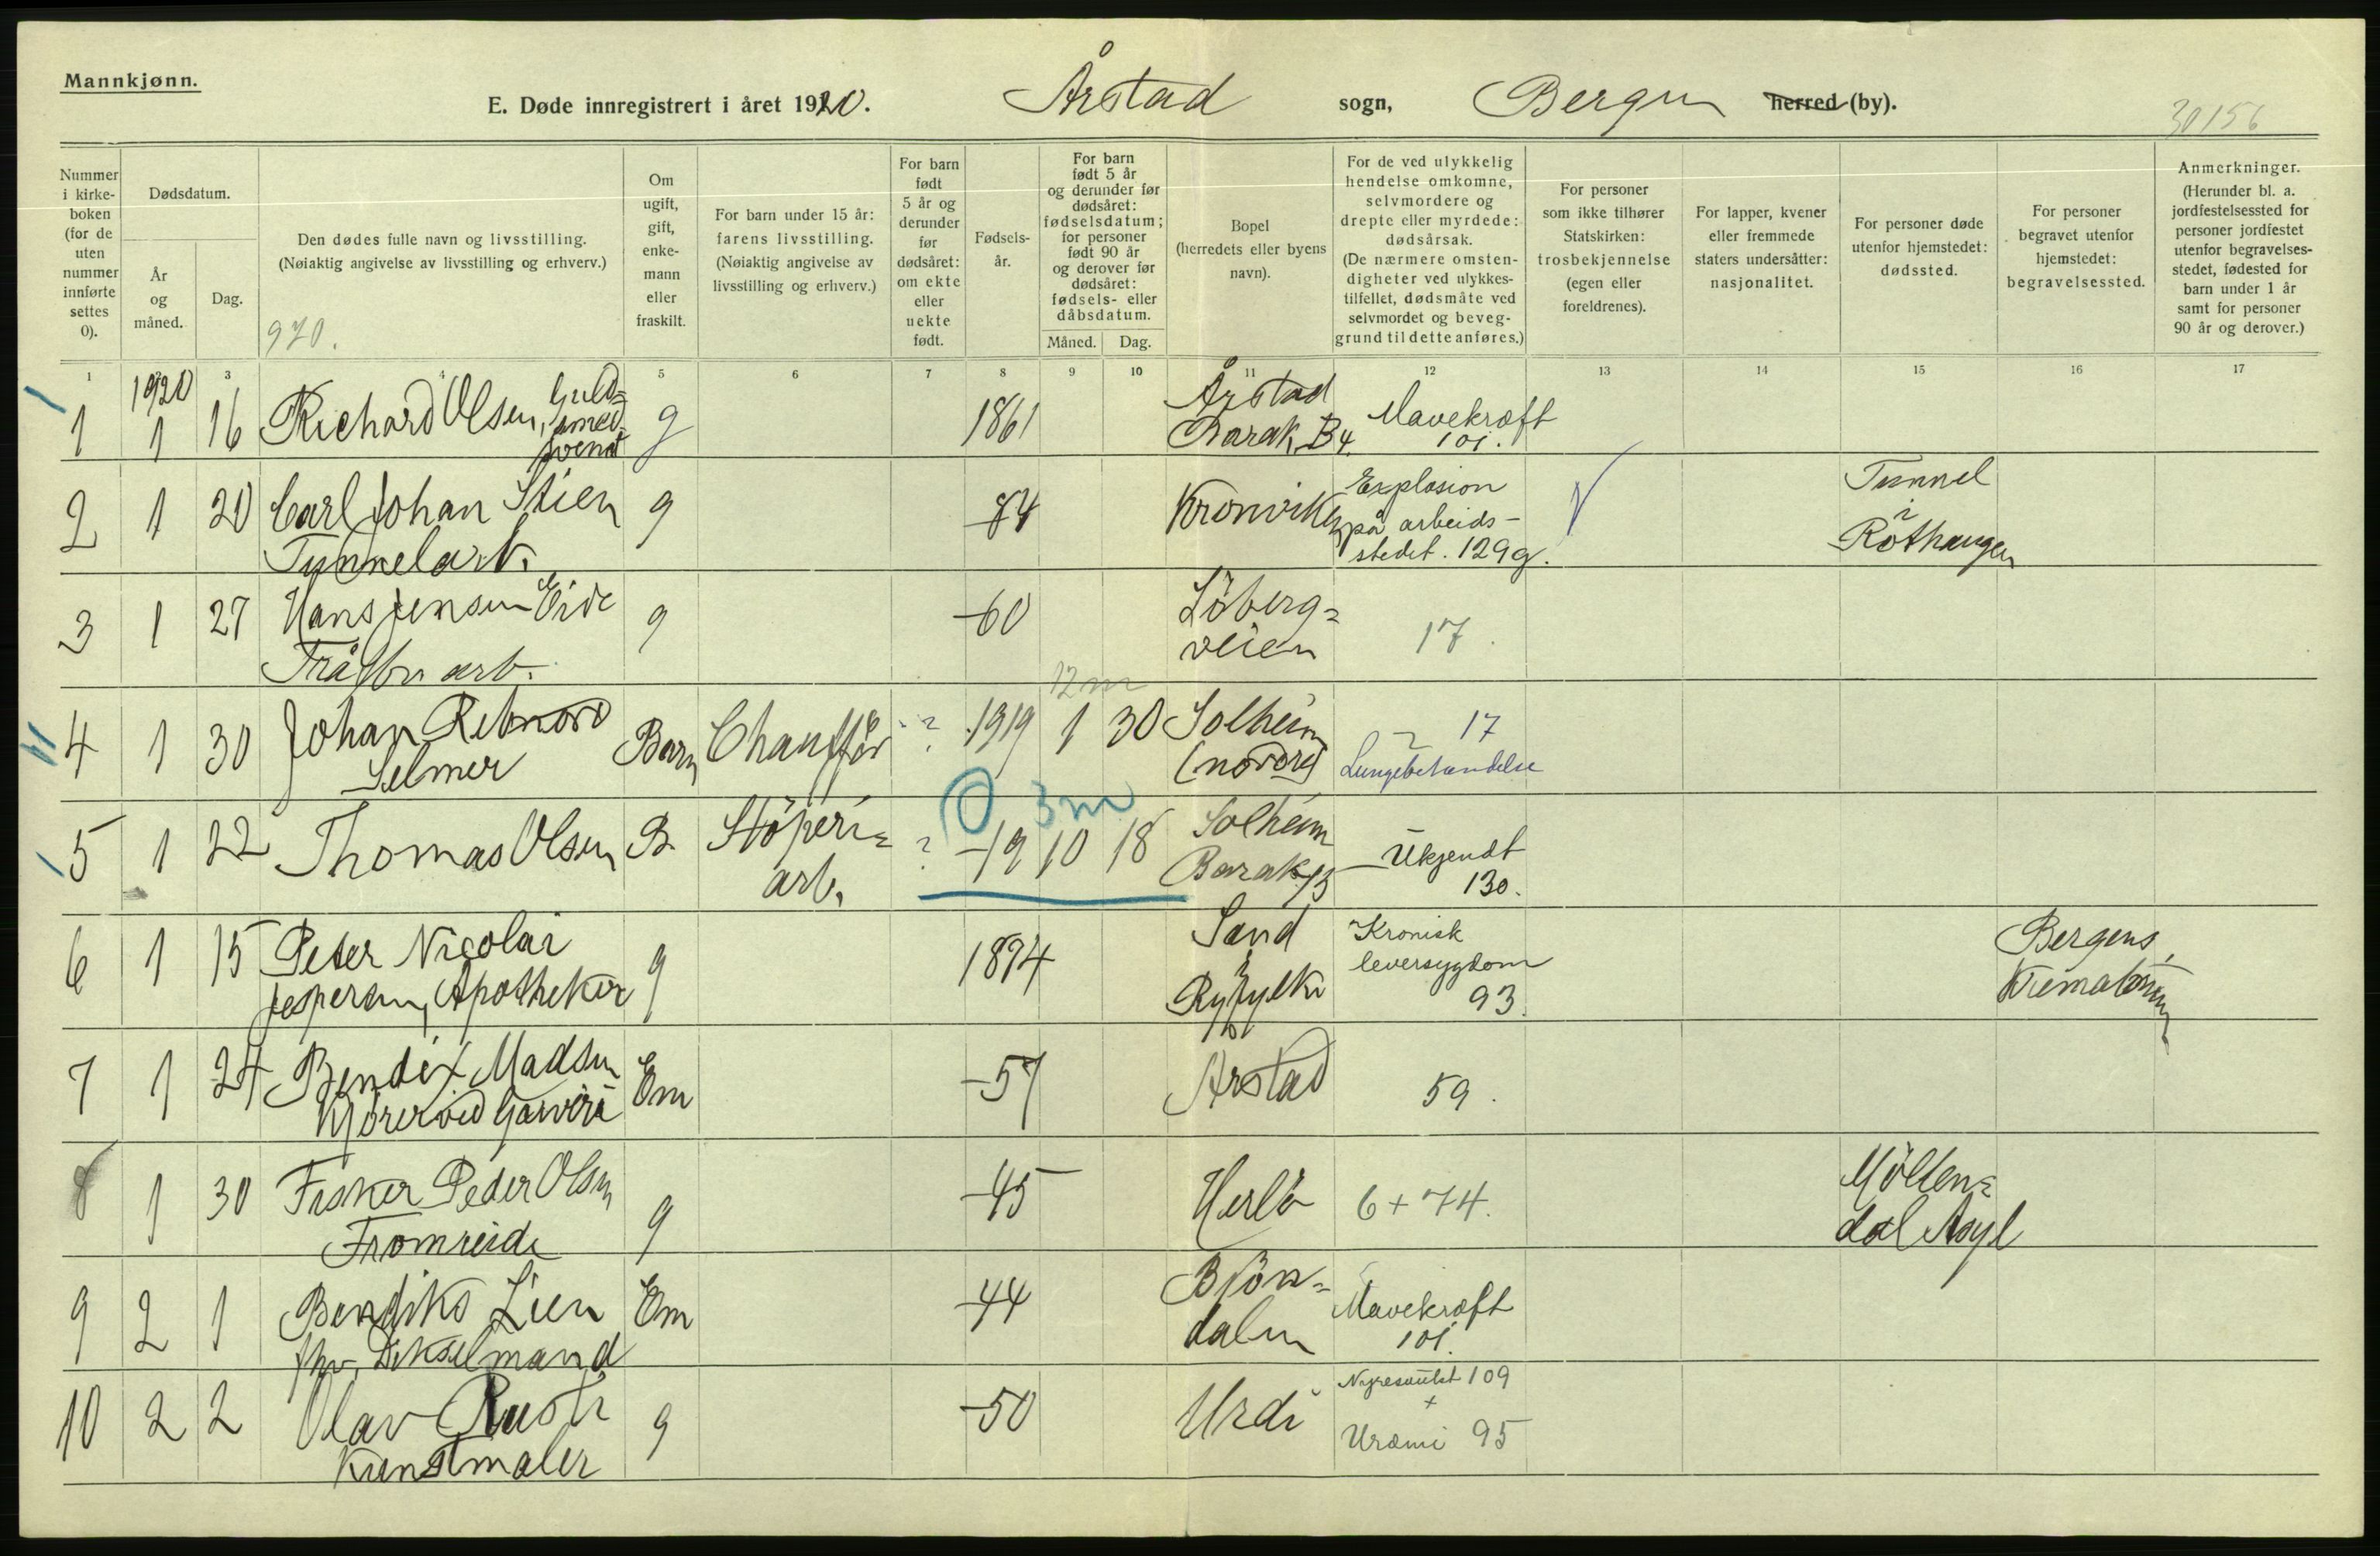 Mannkjønn.
E. Døde innregistrert i året 1920. Årstad sogn, Bergen herred (by).
30156
Nummer i kirke- boken (for de uten nummer innførte settes 0).
Dødsdatum.
År og måned.
Dag.
Den dødes fulle navn og livsstilling.
(Nøiaktig angivelse av livsstilling og erhverv.)
970.
Om ugift, gift, enke- mann eller fraskilt.
For barn under 15 år: farens livsstilling. (Nøiaktig angivelse av livsstilling og erhverv.)
For barn født 5 år og derunder før dødsåret: om ekte eller uekte født.
Fødsels- år.
For barn født 5 år og derunder før dødsåret: fødselsdatum; for personer født 90 år og derover før dødsåret: fødsels- eller dåbsdatum.
Måned. Dag.
Bopel (herredets eller byens navn).
For de ved ulykkelig hendelse omkomne, selvmordere og drepte eller myrdede: dødsårsak. (De nærmere omsten- digheter ved ulykkes- tilfellet, dødsmåte ved selvmordet og beveg- grund til dette anføres.)
For personer som ikke tilhører Statskirken: trosbekjennelse (egen eller foreldrenes).
For lapper, kvener eller fremmede staters undersåtter: nasjonalitet.
For personer døde utenfor hjemstedet: dødssted.
For personer begravet utenfor hjemstedet: begravelsessted.
Anmerkninger. (Herunder bl. a. jordfestelsessted for personer jordfestet utenfor begravelses- stedet, fødested for barn under 1 år samt for personer 90 år og derover.)
1 3 4 5 6 7 8 9 10 11 12 13 14 15 16 17
1920
1 1 16 Richard Olsen, Guld= smed= svend g 1861 Årstad Barak B4. Mavekræft 101.
2 1 20 Carl Johan Stien Tunnelarb. g -84 Kronviken Explosion på arbeids- stedet. 129g. Tunnel i Rothaugen
3 1 27 Hans Jensen Eide g -60 Löberg= veien 17.
arb.
12 m
4 1 30 Johan Selmer Barn Chauffør ? 1919 1 30 Solheim (nordre) 17 Lungebetændelse
0 3 m
5 1 22 Thomas Olsen B. Støperi= arb. ? -19 10 18 Solheim Barak 13 Ukjendt 130.
6 1 15 Peter Nicolai Jespersen, Apotheker g 1874 Sand Ryfylke Kronisk leversygdom 93. Bergens Krematorium
7 1 24 Bendix Madsen Kjører ved Garveri Em -57 Årstad 59.
8 1 30 Fisker Peder Olsen Fromreide g -45 Herlö 6 + 74. Möllen= dal Asyl
9 2 1 Bendiks Lien fhv. Em -44 Björn= dalen Mavekræft 101.
10 2 2 Olav Rusti Kunstmaler g -50 Urdi Nyresvulst 109 + Uræmi 95